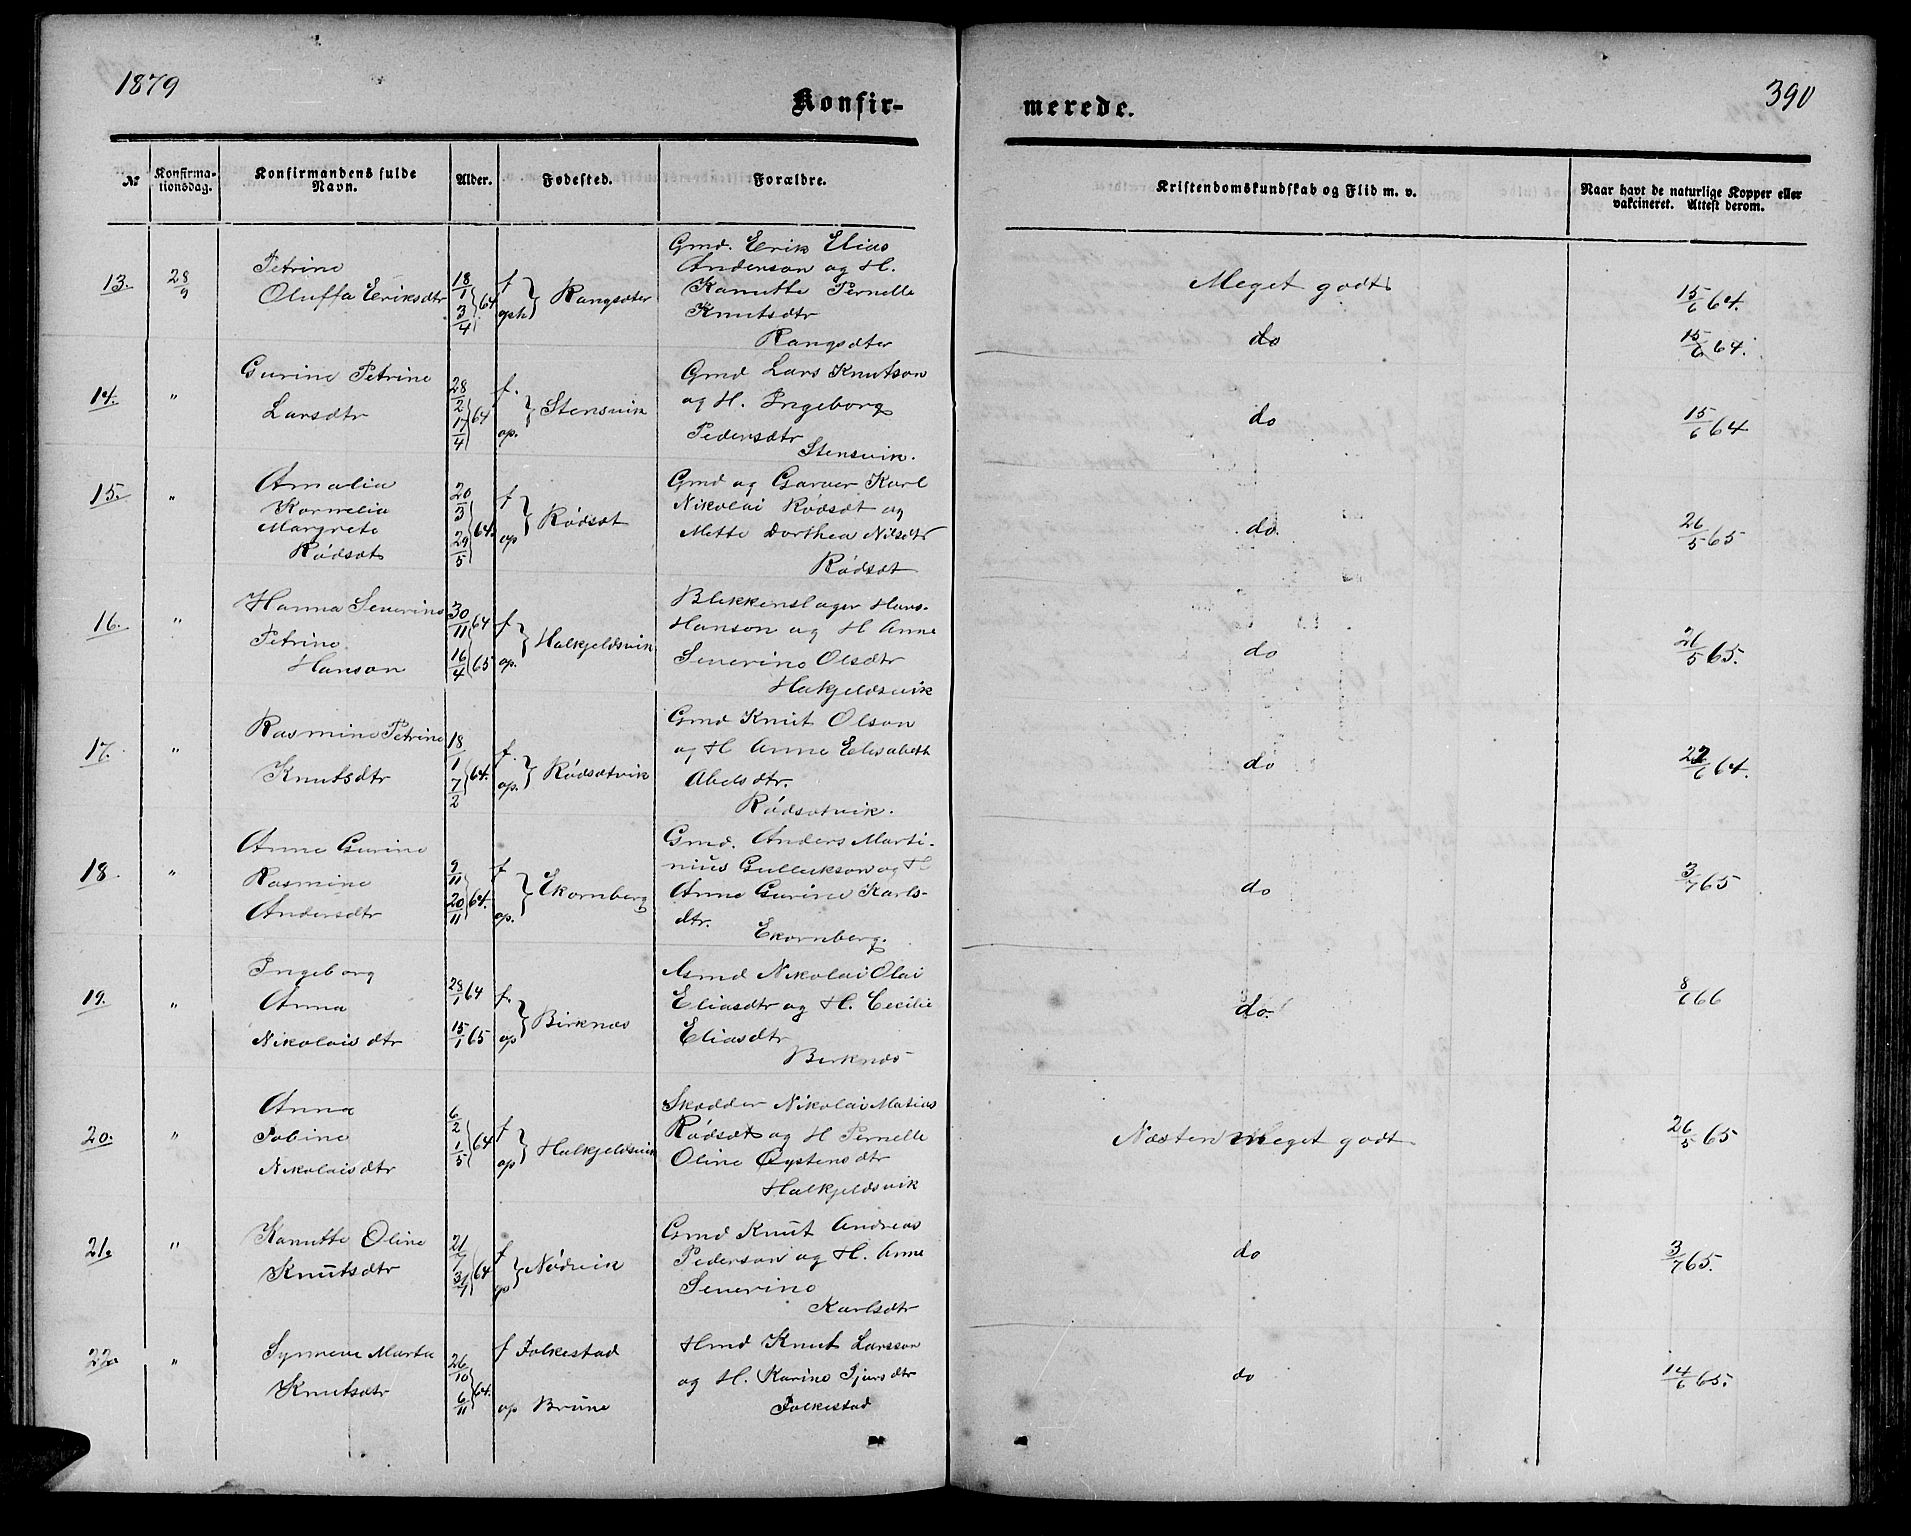 1879
390
Konfir-
merede.
№
Konfirma-
tionsdag.
Konfirmandens fulde
Navn.
Alder.
Fødested.
Forældre.
Kristendomskundskab og Flid m. v.
Naar havt de naturlige Kopper eller
vakcineret. Attest derom.
13. 28/9
Petrine
Oluffa Eriksdtr
18/1 3/4 } 64
f oph } Rangsæter
Gmd. Erik Elias
Anderson og H.
Kanutte Pernelle
Knutsdtr
Rangsæter
Meget godt
15/6 64.
do
15/6 64.
14. "
Gurine Petrine
Larsdtr
28/2 17/4 } 64
f. op. } Stensvik
Gmd Lars Knutson
og H. Ingeborg
Pedersdtr
Stensvik.
do
15/6 64
15. "
Amalia
Kornelia
Margrete
Rødsæt
20/3 29/5 } 64.
f op } Rødsæt
Gmd og Garver Karl
Nikolai Rødsæt og
Mette Dorthea Nilsdtr
Rødsæt
do.
26/5 65
16. "
Hanna Severine
Petrine
Hanson
30/11 64 16/4 65
f op. } Halkjeldsvik
Blikkenslager Hans
Hanson og H Anne
Severine Olsdtr
Hakjeldsvik
do
26/5 65.
17. "
Rasmine Petrine
Knutsdtr
18/1 7/2 } 64.
f. op. } Rødsætvik
Gmd Knut Olson
og H Anne Elisabeth
Abelsdtr.
Rødsætvik.
do
22/6 64.
18. "
Anne Gurine
Rasmine
Andersdtr
9/11 20/11 } 64.
f op. } Ekornberg
Gmd. Anders Marti-
nius Gullikson og H
Anne Gurine Karls-
dtr.
Ekornberg.
do
3/7 65
19. "
Ingeborg
Anna
Nikolaisdtr
28/1 64 15/1 65
f. op } Birknes
Gmd Nikolai Olai
Eliasdtr og H. Cecilie
Eliasdtr
Birknes
do.
8/6 66
20. "
Anna
Jobine
Nikolaisdtr
6/2 1/5 } 64
f op } Halkjeldsvik
Skredder Nikolai Matias
Rødsæt og H Pernelle
Oline Øystensdtr
Halkjeldsvik
Næsten Meget godt
26/5 65
21. "
Kanutte Oline
Knutsdtr
21/7 31/7 } 64
f op } Nødvik
Gmd Knut Andreas
Pederson og H. Anne
Severine
Karlsdtr
do
3/7 65.
22. "
Synneve Marta
Knutsdtr
26/10 6/11 } 64.
f Folkestad
op Brune
Hmd Knut Larsson
og H. Karine Sjursdtr
Folkestad
do
14/6 65.